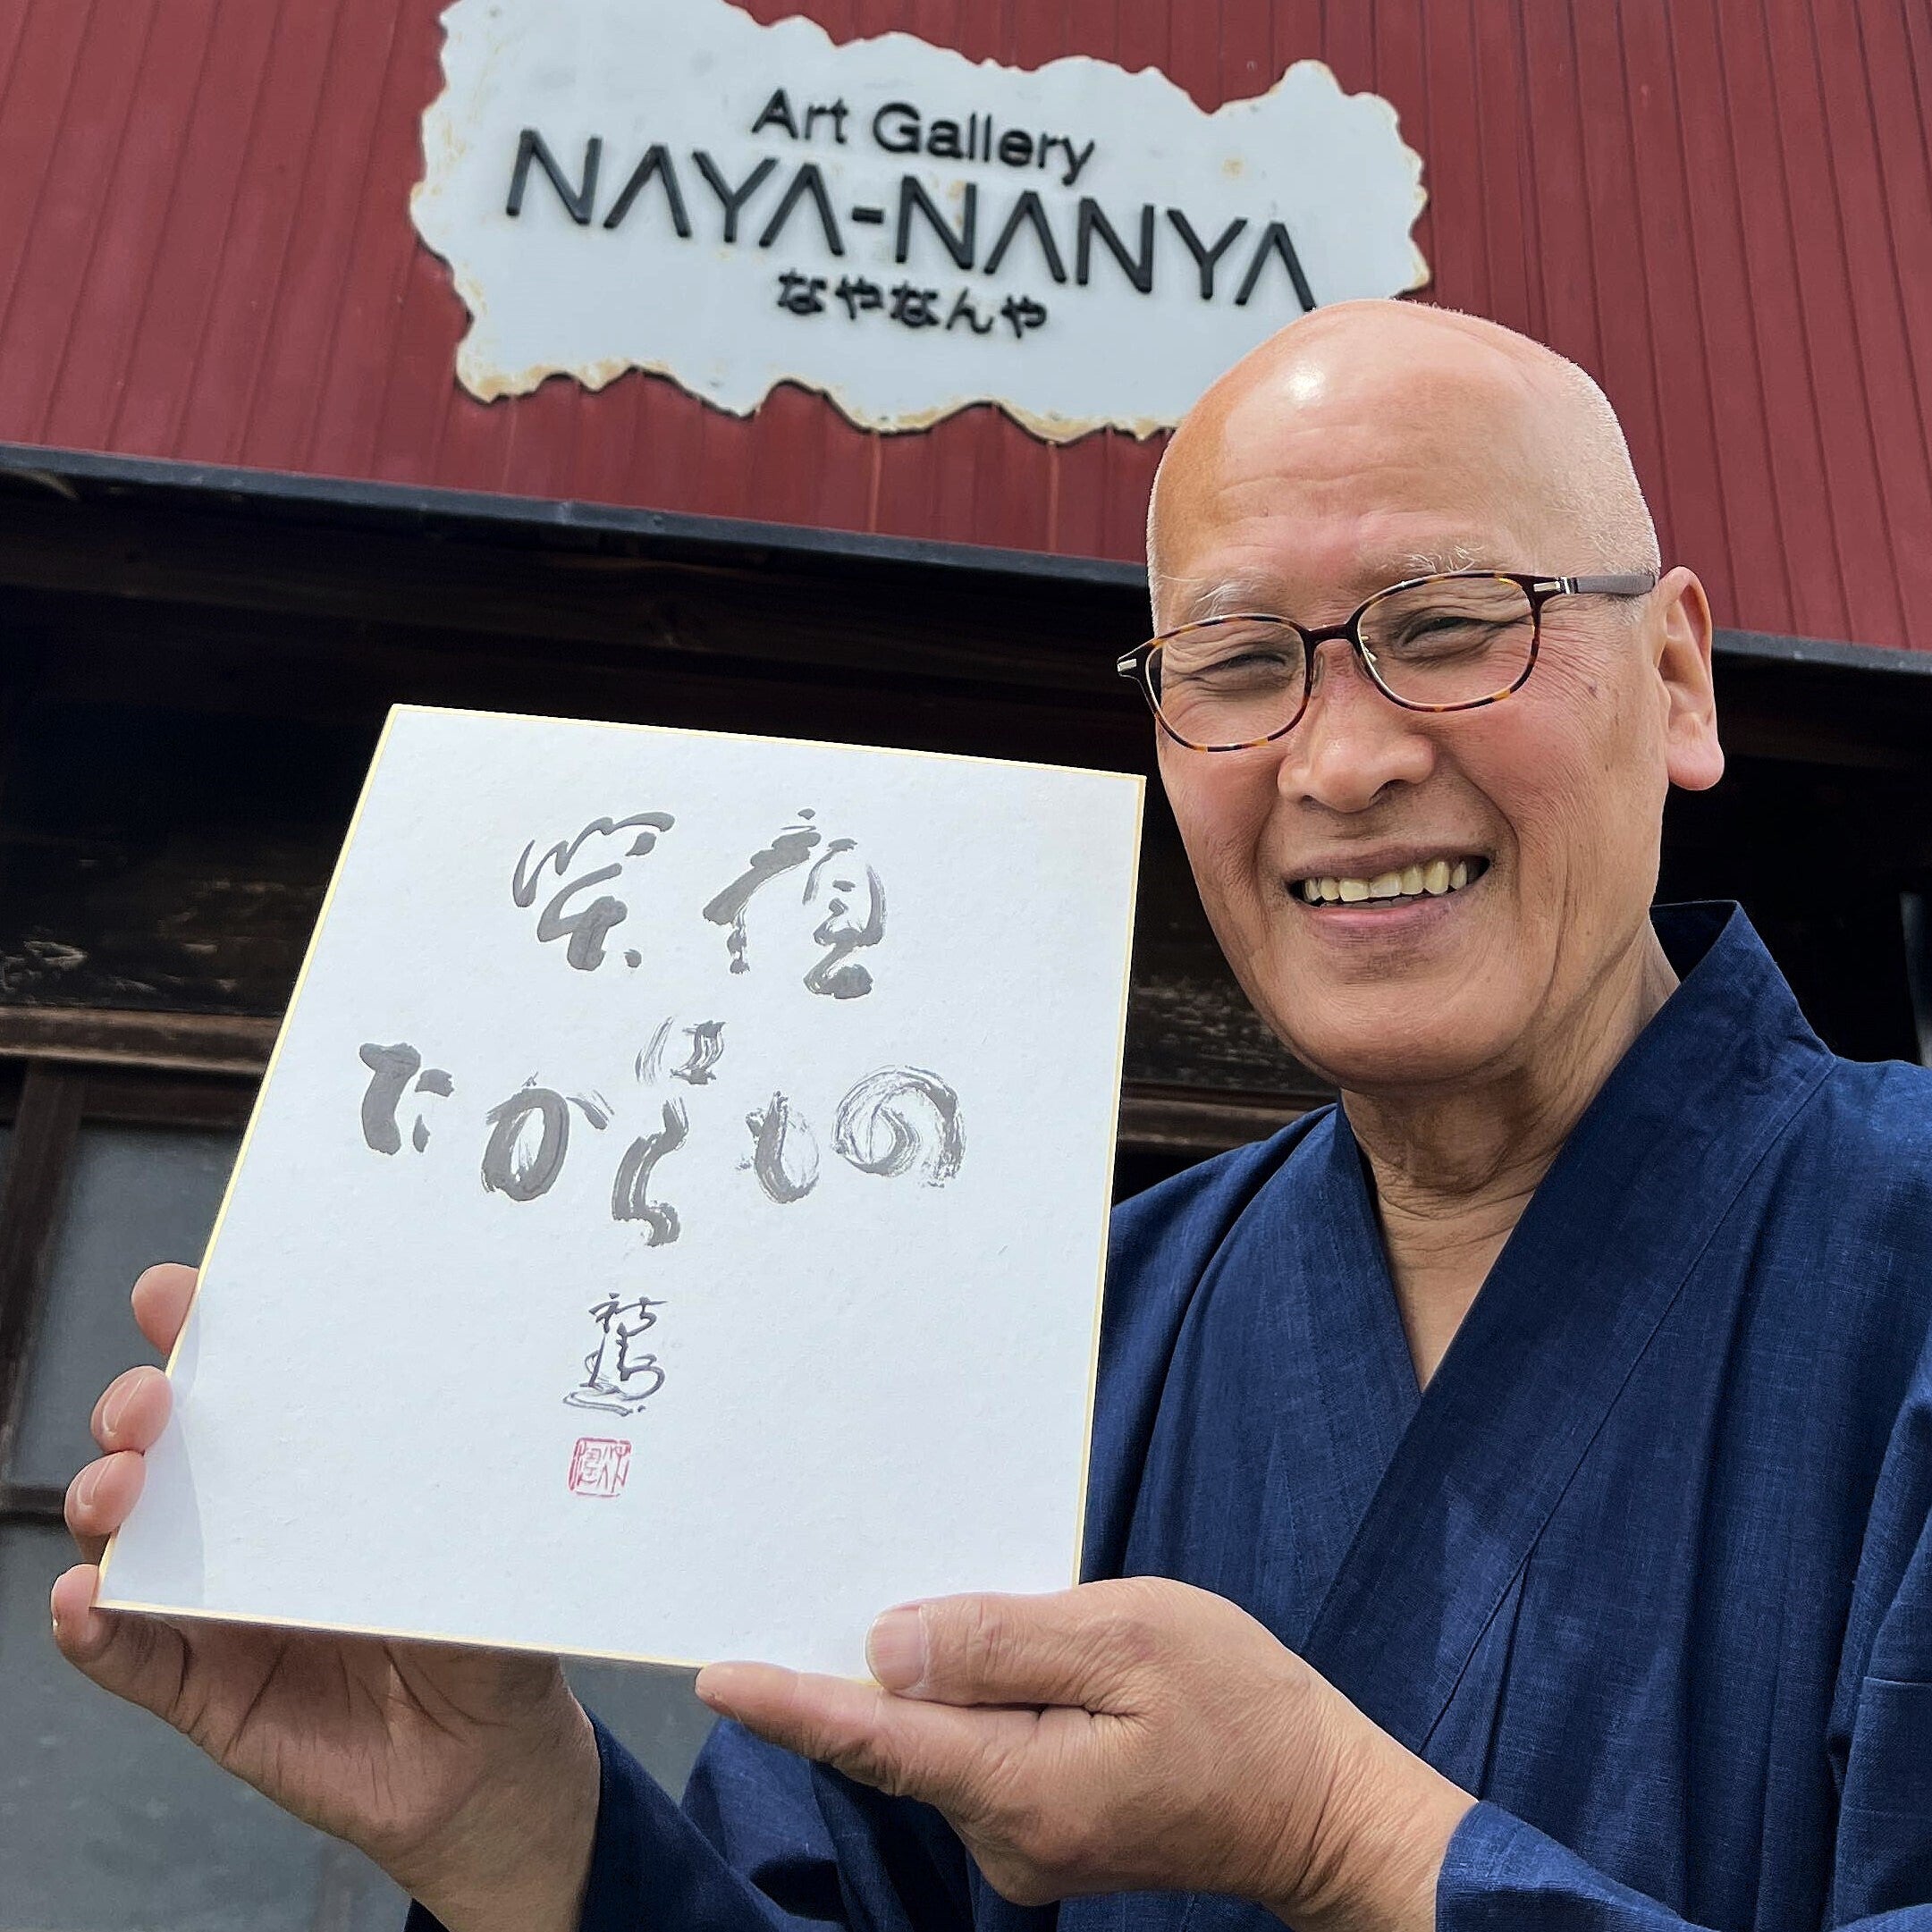 Art Gallery
NAYA-NANYA
なやなんや
笑顔
は
たからもの